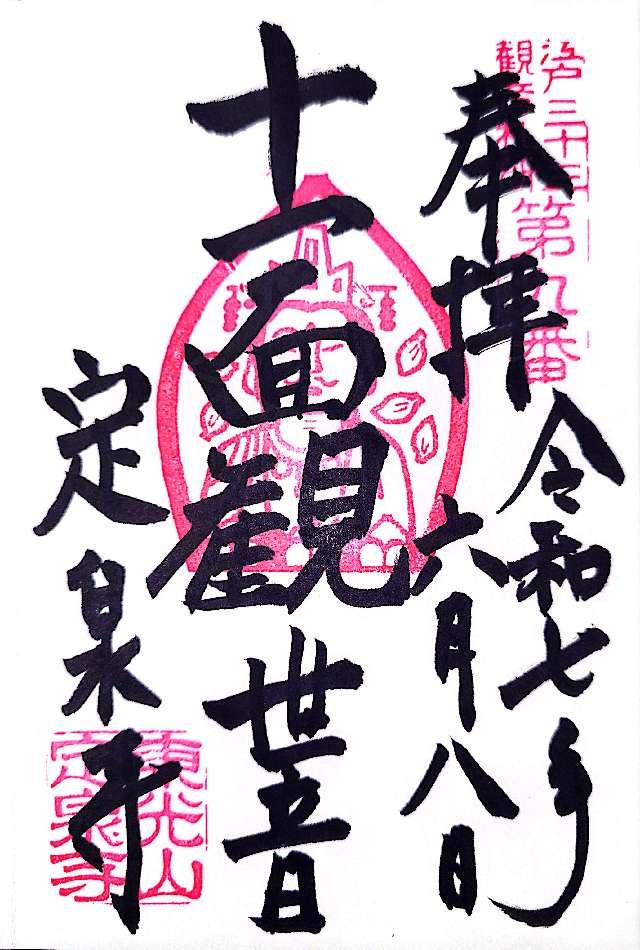 江戸三十三
観音札所
第九番
奉拝
令和七年
六月八日
十一面観世音
定泉寺
東光山
定泉寺